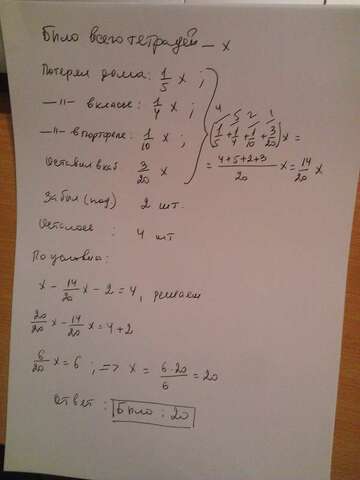 Было всего тетрадей – x
Потерял дома: 1/5 x ;
—"— в классе: 1/4 x ;
—"— в портфеле: 1/10 x ;
Оставил в каб. 3/20 x
4 5 2 1
(1/5 + 1/4 + 1/10 + 3/20) x =
= (4+5+2+3)/20 x = 14/20 x
Забыл (под.) 2 шт.
Осталось : 4 шт
По условию:
x - 14/20 x - 2 = 4, решаем
20/20 x - 14/20 x = 4 + 2
6/20 x = 6 ; => x = 6·20/6 = 20
Ответ : Было : 20